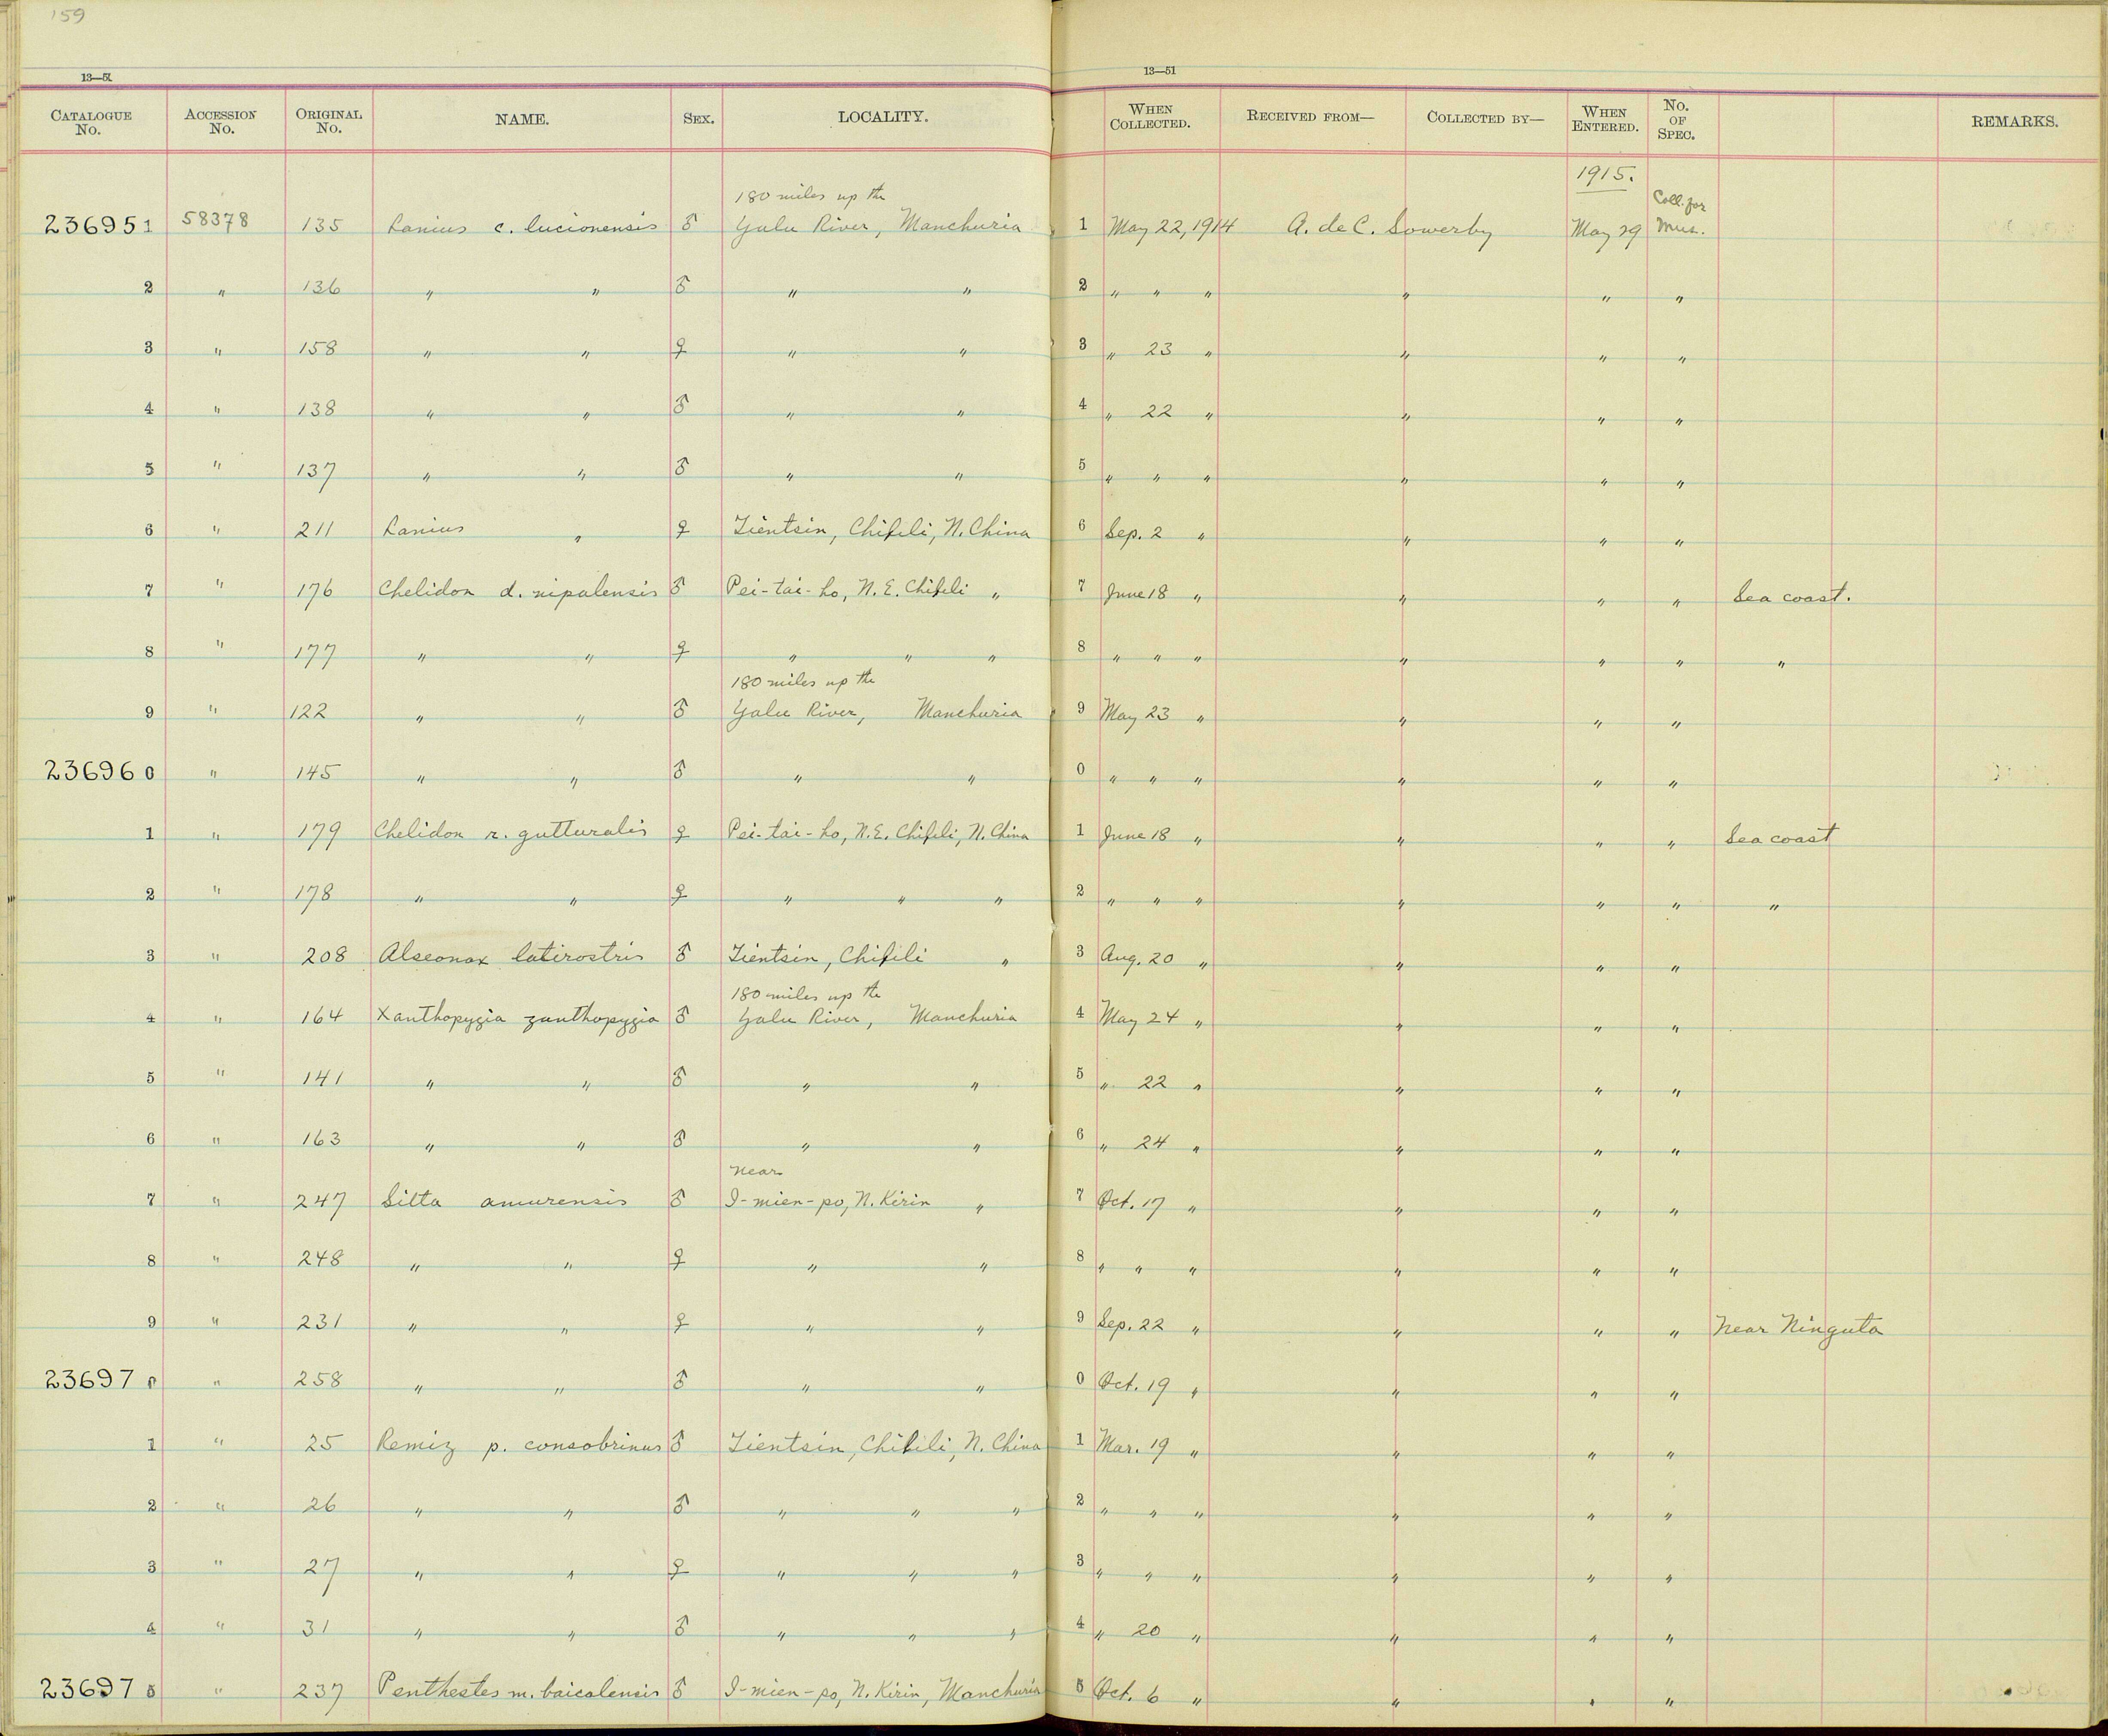 159
13—51 13—51
CATALOGUE No. ACCESSION No. ORIGINAL No. NAME. SEX. LOCALITY. WHEN COLLECTED. RECEIVED FROM— COLLECTED BY— WHEN ENTERED. No. OF SPEC. REMARKS.
1915.
180 miles up the Coll. for
236951 58378 135 Lanius c. lucionensis ♂ Yalu River, Manchuria 1 May 22, 1914 A. de C. Sowerby May 29 Mus.
2 " 136 " " ♂ " " 2 " " " " " "
3 " 158 " " ♀ " " 3 " 23 " " " "
4 " 138 " " ♂ " " 4 " 22 " " " "
5 " 137 " " ♂ " " 5 " " " " " "
6 " 211 Lanius " ♀ Tientsin, Chihli, N. China 6 Sep. 2 " " " "
7 " 176 Chelidon d. nipalensis ♂ Pei-tai-ho, N.E. Chihli " 7 June 18 " " " " Sea coast.
8 " 177 " " ♀ " " " 8 " " " " " " "
180 miles up the
9 " 122 " " ♂ Yalu River, Manchuria 9 May 23 " " " "
236960 " 145 " " ♂ " " 0 " " " " " "
1 " 179 Chelidon r. gutturalis ♀ Pei-tai-ho, N.E. Chihli, N. China 1 June 18 " " " " Sea coast
2 " 178 " " ♀ " " " 2 " " " " " " "
3 " 208 Alseonax latirostris ♂ Tientsin, Chihli " 3 Aug. 20 " " " "
180 miles up the
4 " 164 Xanthopygia xanthopygia ♂ Yalu River, Manchuria 4 May 24 " " " "
5 " 141 " " ♂ " " 5 " 22 " " " "
6 " 163 " " ♂ " " 6 " 24 " " " "
near
7 " 247 Sitta amurensis ♂ I-mien-po, N. Kirin " 7 Oct. 17 " " " "
8 " 248 " " ♀ " " 8 " " " " " "
9 " 231 " " ♀ " " 9 Sep. 22 " " " " Near Ninguta
236970 " 258 " " ♂ " " 0 Oct. 19 " " " "
1 " 25 Remiz p. consobrinus ♂ Tientsin, Chihli, N. China 1 Mar. 19 " " " "
2 " 26 " " ♂ " " " 2 " " " " " "
3 " 27 " " ♀ " " " 3 " " " " " "
4 " 31 " " ♂ " " " 4 " 20 " " " "
236975 " 237 Penthestes m. baicalensis ♂ I-mien-po, N. Kirin, Manchuria 5 Oct. 6 " " " "